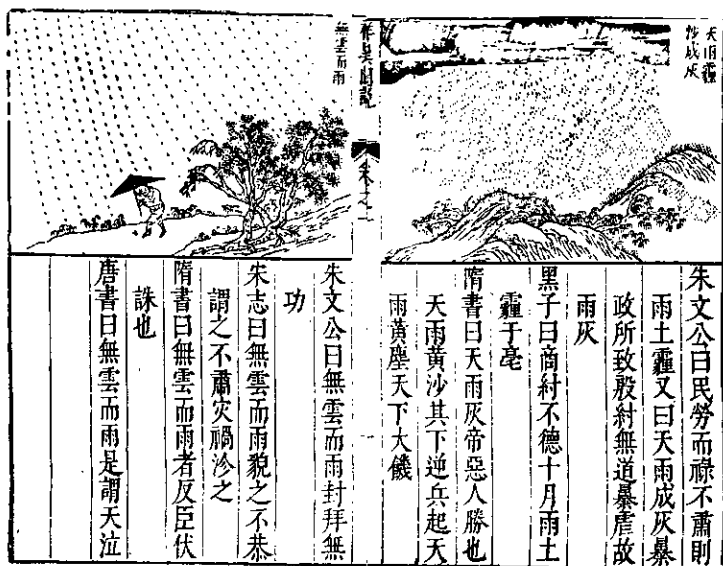 天雨霾
沙成灰
朱文公曰民勞而祿不肅則
雨土霾又曰天雨成灰暴
政所致殷紂無道暴虐故
雨灰
黑子曰商紂不德十月雨土
霾于亳
隋書曰天雨灰帝惡人勝也
天雨黃沙其下逆兵起天
雨黃塵天下大饑
祥異圖說
卷之一
無雲而雨
朱文公曰無雲而雨封拜無
功
宋志曰無雲而雨貌之不恭
謂之不肅災禍沴之
隋書曰無雲而雨者反臣伏
誅也
唐書曰無雲而雨是謂天泣